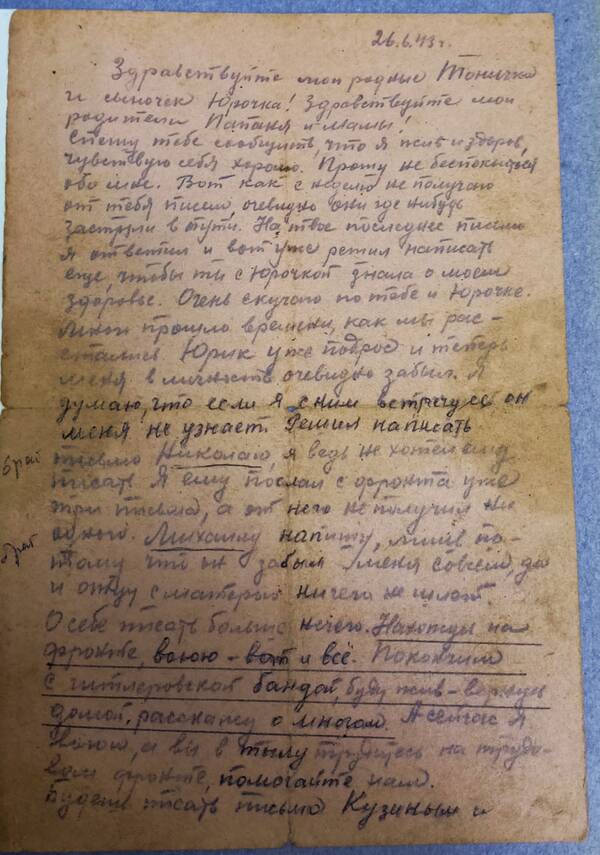 26.6.43 г.
Здравствуйте мои родные Тоничка
и сыночек Юрочка! Здравствуйте мои
родители Папаня и мамы!
Спешу тебе сообщить, что я жив и здоров,
чувствую себя хорошо. Прошу не беспокоиться
обо мне. Вот как с неделю не получаю
от тебя писем, очевидно они где нибудь
застряли в пути. На твое последнее письмо
я ответил и вот уже решил написать
еще, чтобы ты с Юрочкой знала о моем
здоровье. Очень скучаю по тебе и Юрочке.
Много прошло времени, как мы рас-
стались. Юрик уже подрос и теперь
меня в личность очевидно забыл. Я
думаю, что если я с ним встречусь он
меня не узнает. Решил написать
брат письмо Николаю, я ведь не хотел ему
писать. Я ему послал с фронта уже
три письма, а от него не получил ни
одного. Михаилу напишу, по-
брат тому что он забыл меня совсем, да
и отцу с матерью ничего не шлют.
О себе писать больше нечего. Нахожусь на
фронте, воюю – вот и всё. Покончим
с гитлеровской бандой, буду жив – вернусь
домой, расскажу о многом. А сейчас я
воюю, а вы в тылу трудитесь на трудо-
вом фронте, помогайте нам.
Будешь писать письма Кузиным и